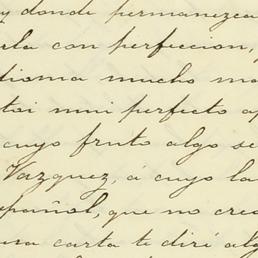 y donde permanezca
rla con perfeccion,
dioma mucho ma
toi mui perfecto a
cuyo fruto algo se
Vazquez, á cuyo la
pañol, que no crea
usa carta te diré alg